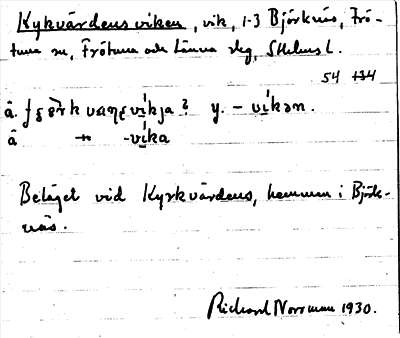 Kykvärdens viken, vik, 1-3 Björknäs, Frö-
tuna sn, Frötuna och Länna skg, Sthlms l.
54 134
å. vikja? y. – vikən.
ä -vika
Beläget vid Kyrkvärdens, hemman i Björk-
näs.
Richard Norrman 1930.